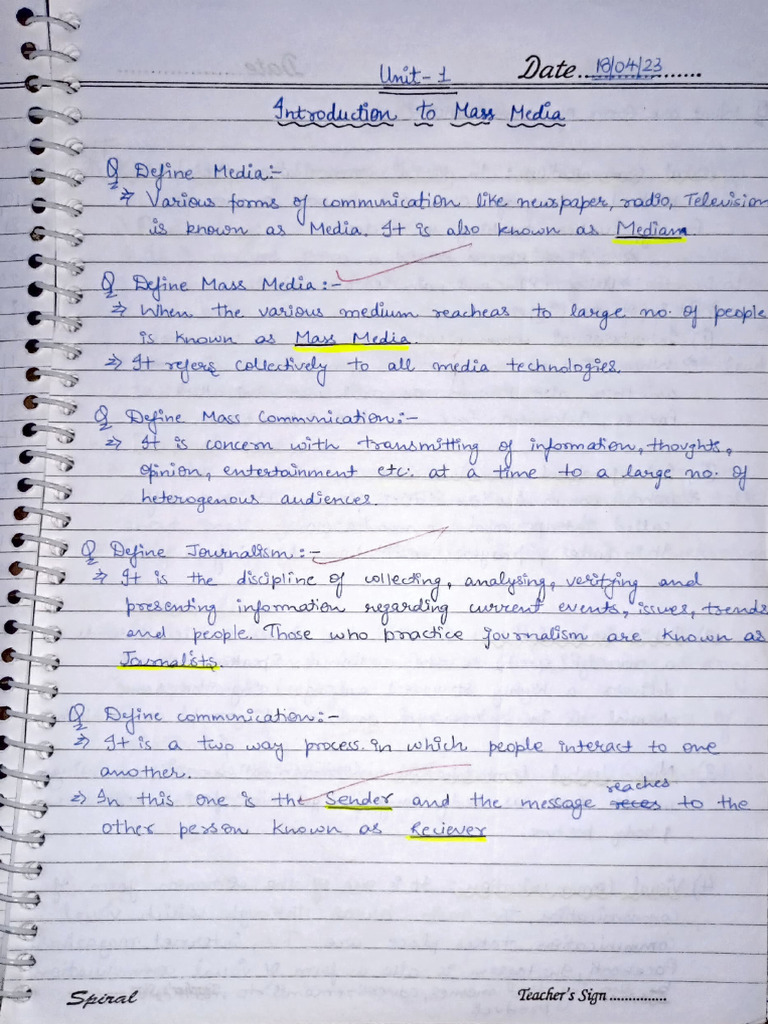 Unit-1
Date 18/04/23
Introduction to Mass Media
Q Define Media:-
⇒ Various forms of communication like newspaper, radio, Television
is known as Media. It is also known as Medium
Q Define Mass Media :-
⇒ When the various medium reacheas to large no. of people
is known as Mass Media.
⇒ It refers collectively to all media technologies.
Q Define Mass Communication:-
⇒ It is concern with transmitting of information, thoughts,
opinion, entertainment etc. at a time to a large no. of
heterogenous audiences.
Q Define Journalism :-
⇒ It is the discipline of collecting, analysing, verifying and
presenting information regarding current events, issues, trends
and people. Those who practice journalism are known as
Journalists.
Q Define communication:-
⇒ It is a two way process in which people interact to one
another.
⇒ In this one is the Sender and the message reaches to the
other person known as Reciever
Spiral
Teacher's Sign ...............